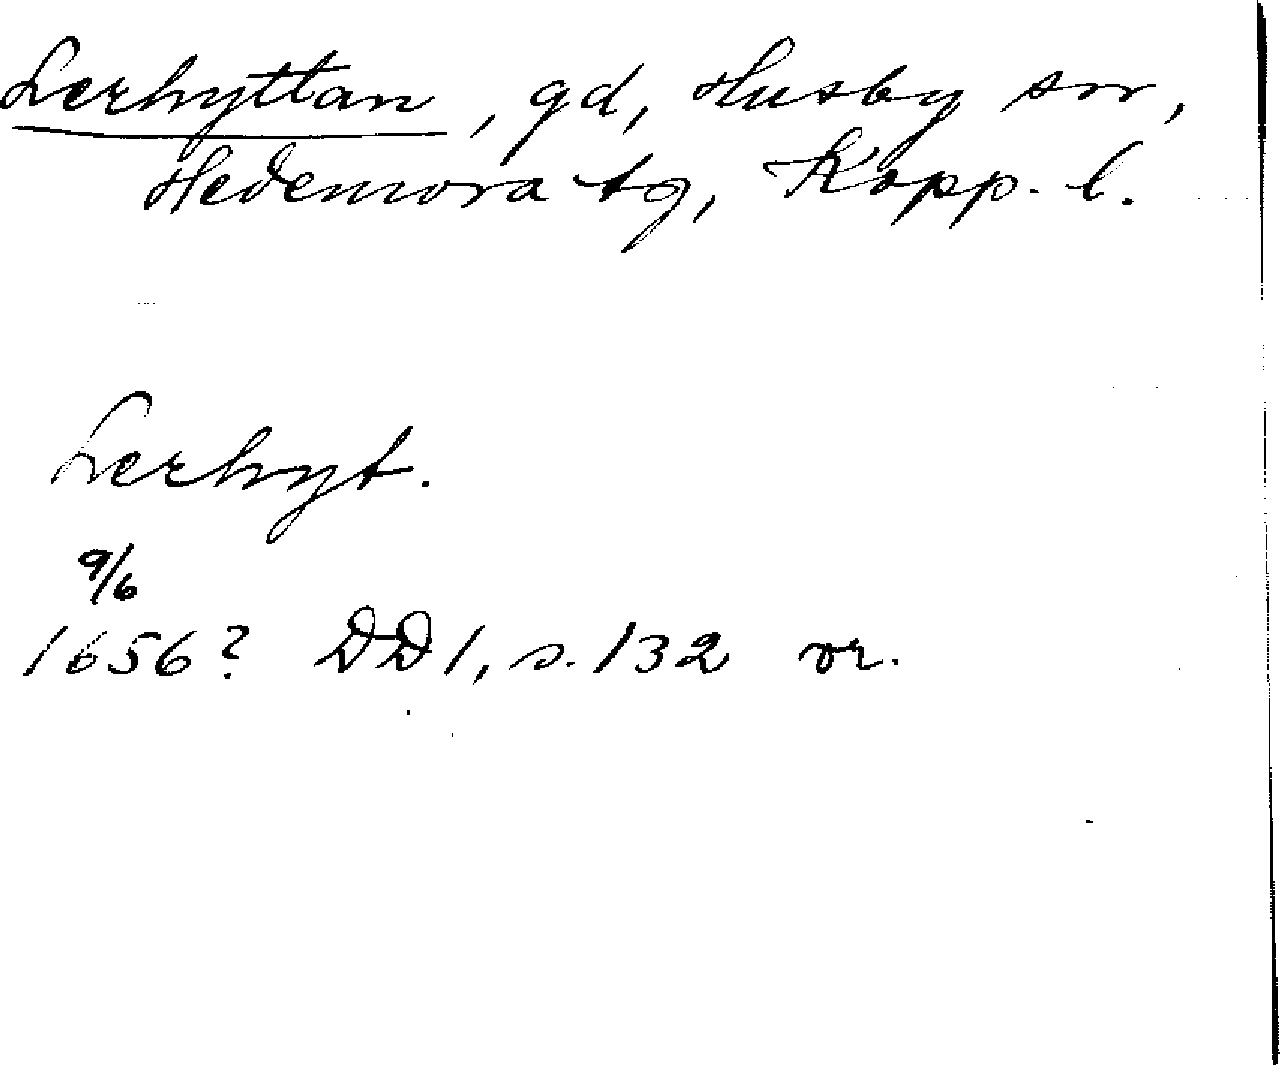 Lerhyttan, gd, Husby sn,
Hedemora tg, Kopp. l.
Lerhyt.
9/6
1656? DD1, s. 132 or.